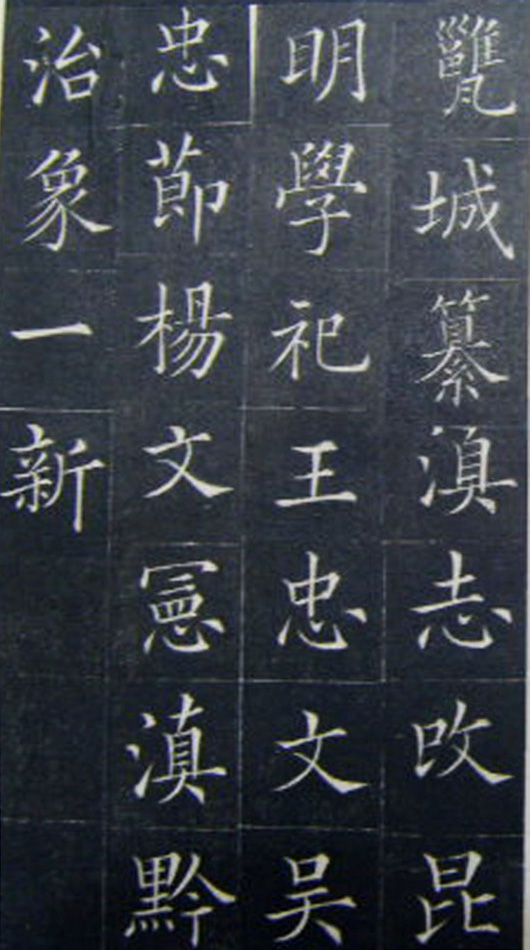 甕城纂滇志改昆
明學祀王忠文吴
忠節楊文憲滇黔
治象一新